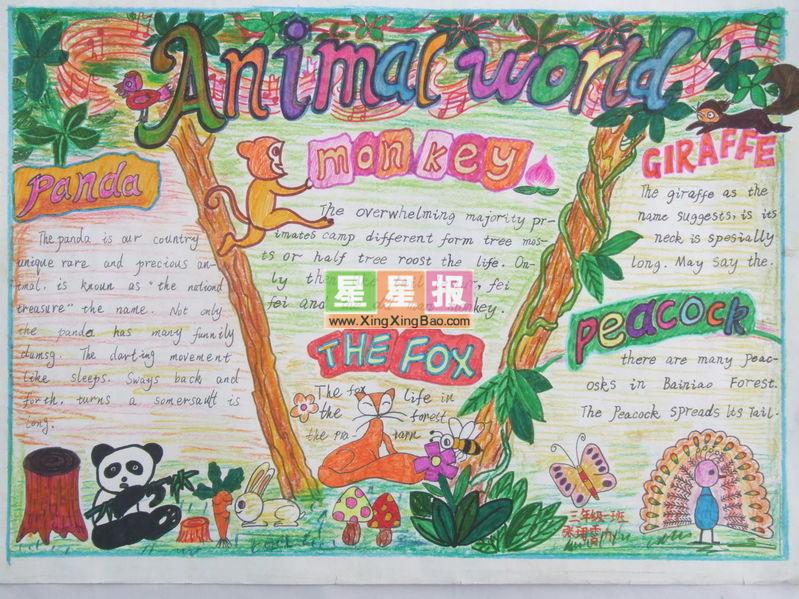 Animal world
panda
The panda is our country
unique rare and precious an-
imal, is known as "the nationd
treasure" the name. Not only
the panda has many funnily
dumsg. The darting movement
like sleeps. Sways back and
forth, turns a somersault is
long.
monkey
The overwhelming majority pr-
imates camp different form tree mos-
ts or half tree roost the life. On-
ly the fei
fei and monkey.
星星报
www.XingXingBao.com
THE FOX
The fox life in
the forest
the
GIRAFFE
The giraffe as the
name suggests, is its
neck is spesially
long. May say the.
peacock
there are many Peac-
osks in Bainiao Forest.
The Peacock spreads its Tail.
三年级一班